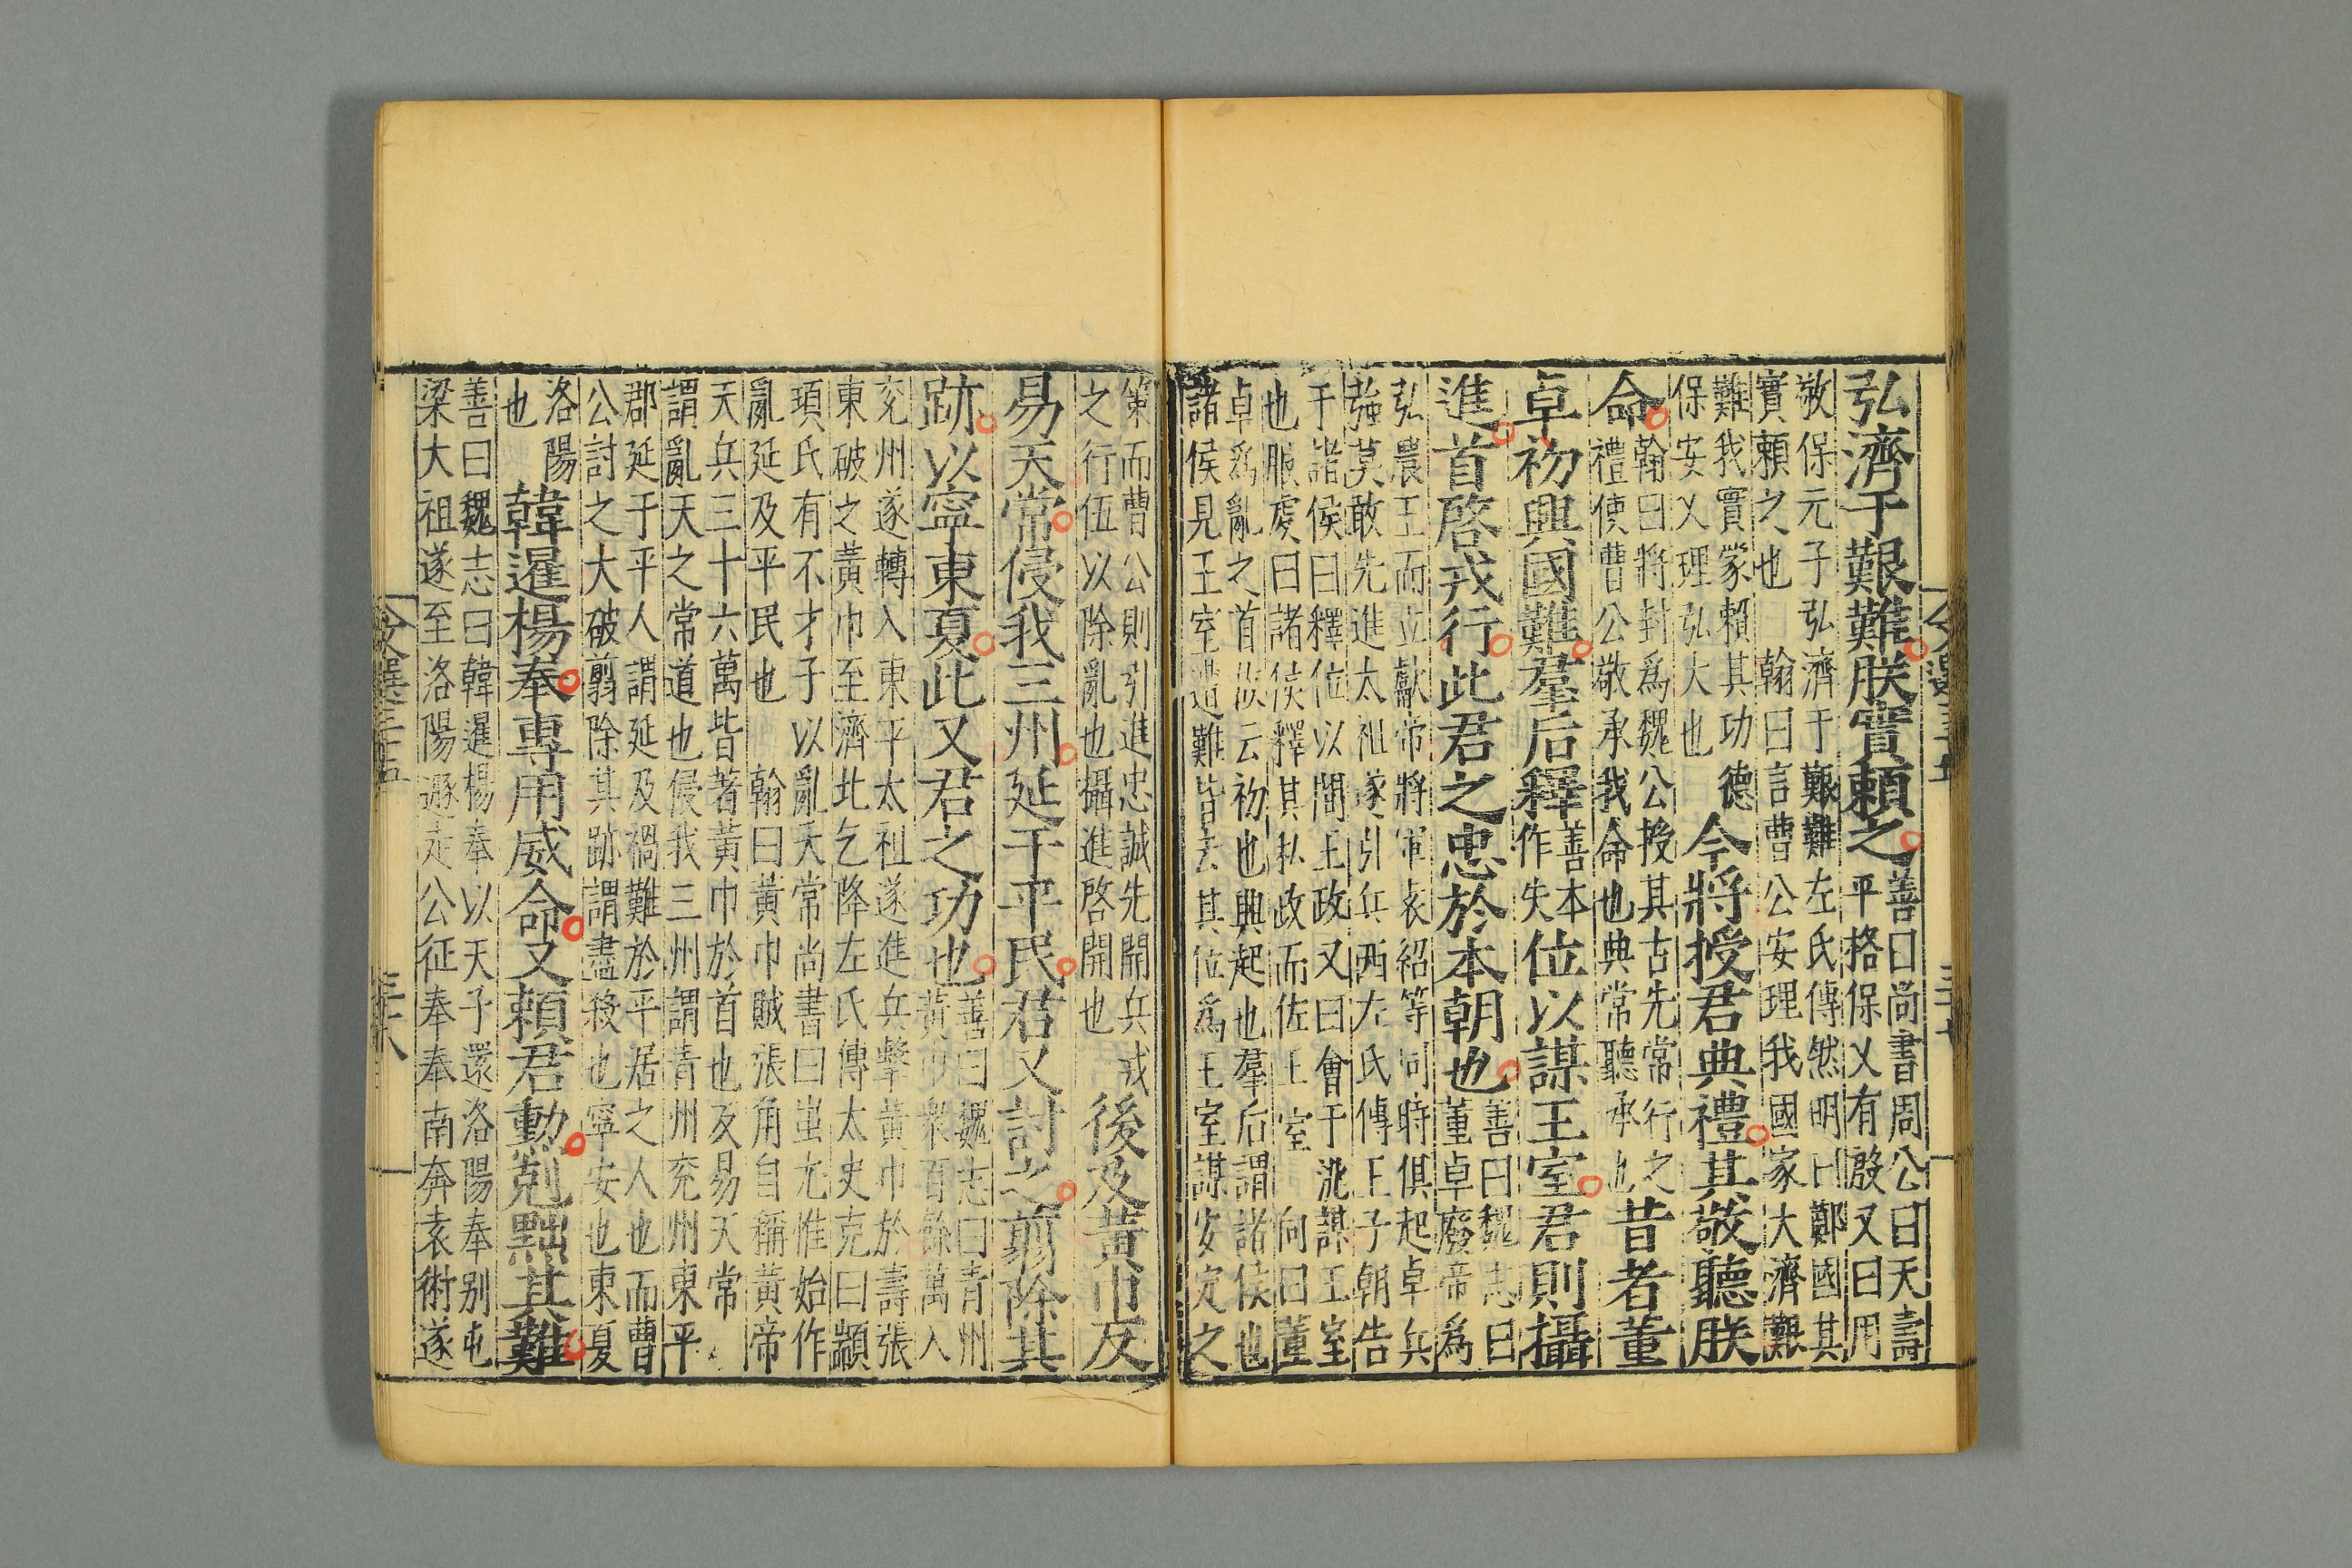 弘濟于艱難朕實賴之善曰尚書周公曰天壽
平格保乂有殷又曰用
敬保元子弘濟于艱難左氏傳然明曰鄭國其
實賴之也 翰曰言曹公安理我國家大濟艱
難我實蒙賴其功德
保安乂理弘大也
今將授君典禮其敬聽朕
命
翰曰將封爲魏公授其古先常行之
禮使曹公敬承我命也典常聽承也
昔者董
卓初興國難羣后釋
善本
作失
位以謀王室君則攝
進首啓戎行此君之忠於本朝也
善曰魏志曰
董卓廢帝爲
弘農王而立獻帝將軍袁紹等同時俱起卓兵
強莫敢先進太祖遂引兵西左氏傳王子朝告
于諸侯曰釋位以間王政又曰會于洮謀王室
也服虔曰諸侯釋其私政而佐王室 向曰董
卓爲亂之首故云初也興起也羣后謂諸侯也
諸侯見王室遭難皆去其位爲王室謀安定之
文選三十五
三十七
策而曹公則引進忠誠先開兵戎
之行伍以除亂也攝進啓開也
後及黃巾反
易天常侵我三州延于平民君又討之翦除其
跡以寧東夏此又君之功也
善曰魏志曰青州
黃巾衆百餘萬入
兖州遂轉入東平太祖遂進兵擊黃巾於壽張
東破之黃巾至濟北乞降左氏傳太史克曰顓
頊氏有不才子以亂天常尚書曰蚩尤惟始作
亂延及平民也 翰曰黃巾賊張角自稱黃帝
天兵三十六萬皆著黃巾於首也反易天常
謂亂天之常道也侵我三州謂青州兖州東平
郡延于平人謂延及禍難於平居之人也而曹
公討之大破翦除其跡謂盡殺也寧安也東夏
洛陽
也
韓暹楊奉專用威命又賴君勳剋黜其難
善曰魏志曰韓暹楊奉以天子還洛陽奉别屯
梁大祖遂至洛陽暹走公征奉奉南奔袁術遂
文選三十五
三十八